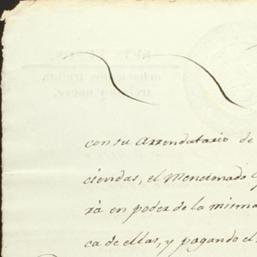 con su Arrendatario de
ciendas, el Mencionado
rá en poder de la misma
ca de ellas, y pagando el